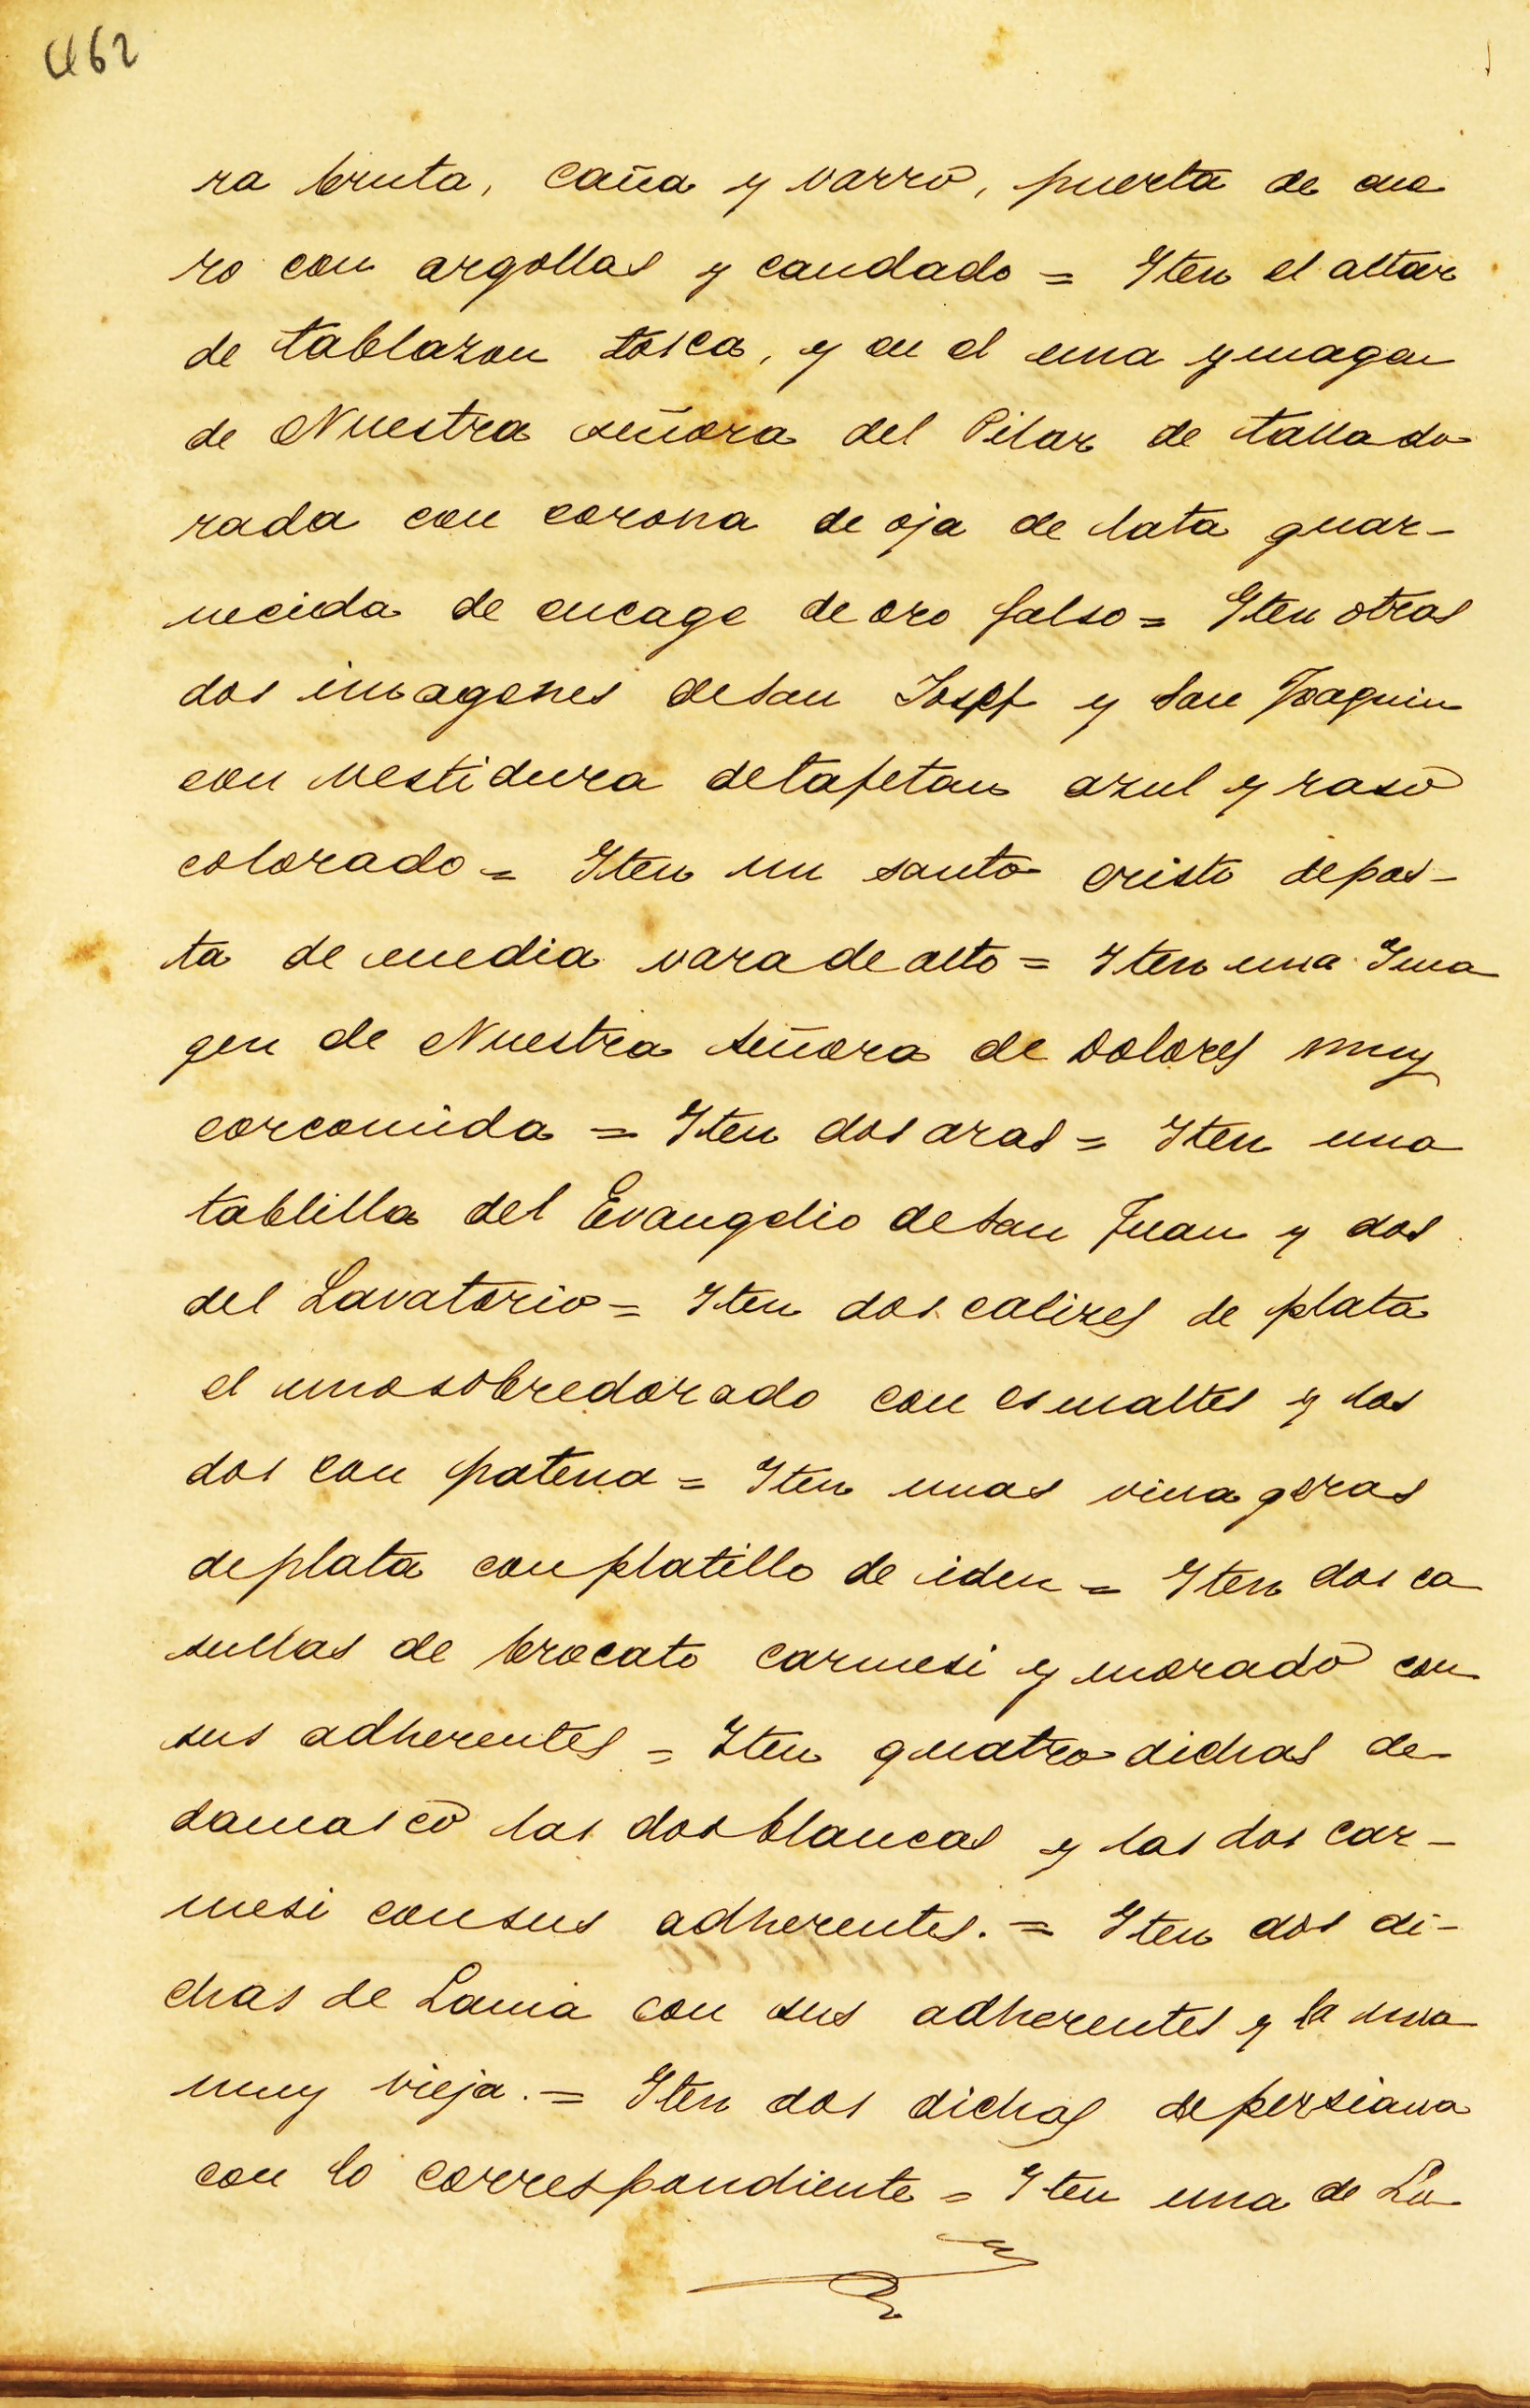 462
ra bruta, caña y varro, puerta de cue
ro con argollas y candado = Iten el altar
de tablazon tosca, y en el una ymagen
de Nuestra señora del Pilar de tallado
rada con corona de oja de lata guar-
necida de encage de oro falso = Iten otras
dos imagenes de san Josef y san Joaquin
con vestidura de tafetan azul y raso
colorado = Iten un santo cristo de pas-
ta de media vara de alto = Iten una Ima
gen de Nuestra señora de Dolores muy
corcomida = Iten dos aras = Iten una
tablilla del Evangelio de san Juan y dos
del Lavatorio = Iten dos calizes de plata
el uno sobredorado con esmaltes y los
dos con patena = Iten unas vinageras
de plata con platillo de iden = Iten dos ca
sullas de brocato carmesi y morado con
sus adherentes = Iten quatro dichas de
damasco las dos blancas y las dos car-
mesi con sus adherentes. = Iten dos di-
chas de Lama con sus adherentes y la una
muy vieja. = Iten dos dichas de persiana
con lo correspondiente = Iten una de La